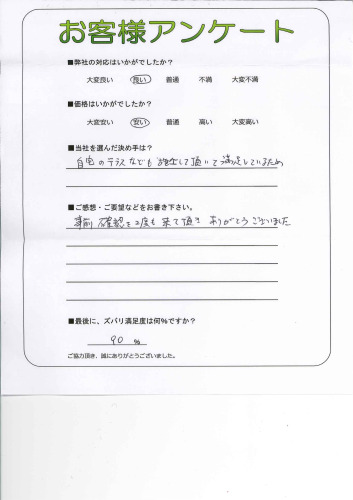 お客様アンケート
■弊社の対応はいかがでしたか?
大変良い 良い 普通 不満 大変不満
■価格はいかがでしたか?
大変安い 安い 普通 高い 大変高い
■当社を選んだ決め手は?
自宅のテラスなども施工して頂いて満足しているため
■ご感想・ご要望などをお書き下さい。
事前確認を2度も来て頂き ありがとうございました
■最後に、ズバリ満足度は何%ですか?
90 %
ご協力頂き、誠にありがとうございました。